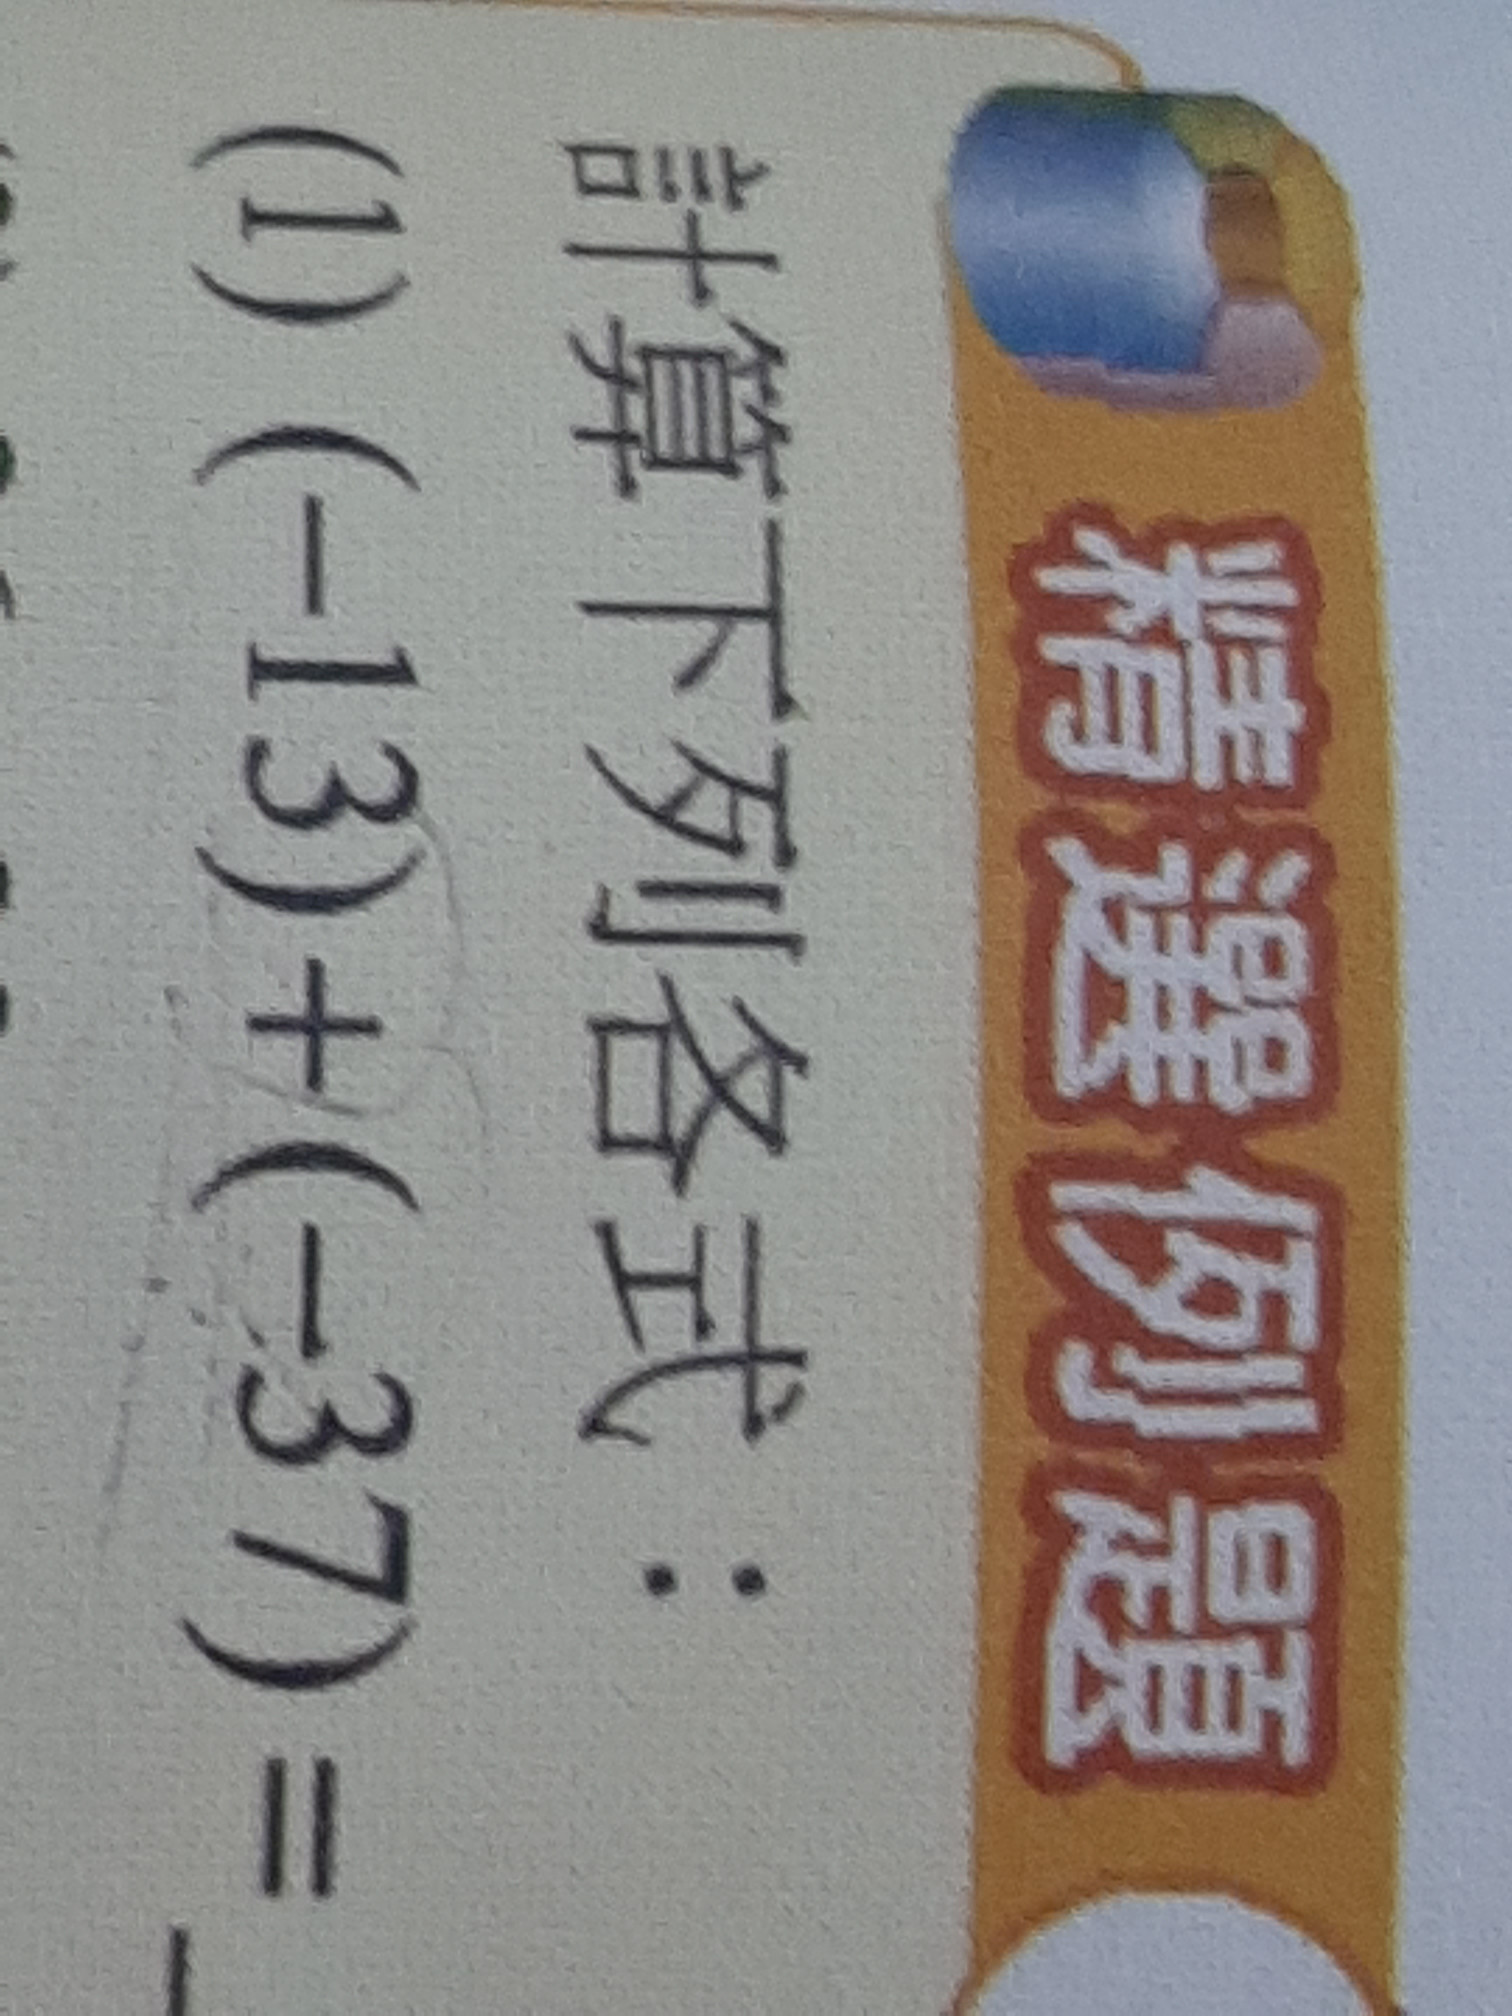 精選例題
計算下列各式：
(1) (−13)+(−37) =